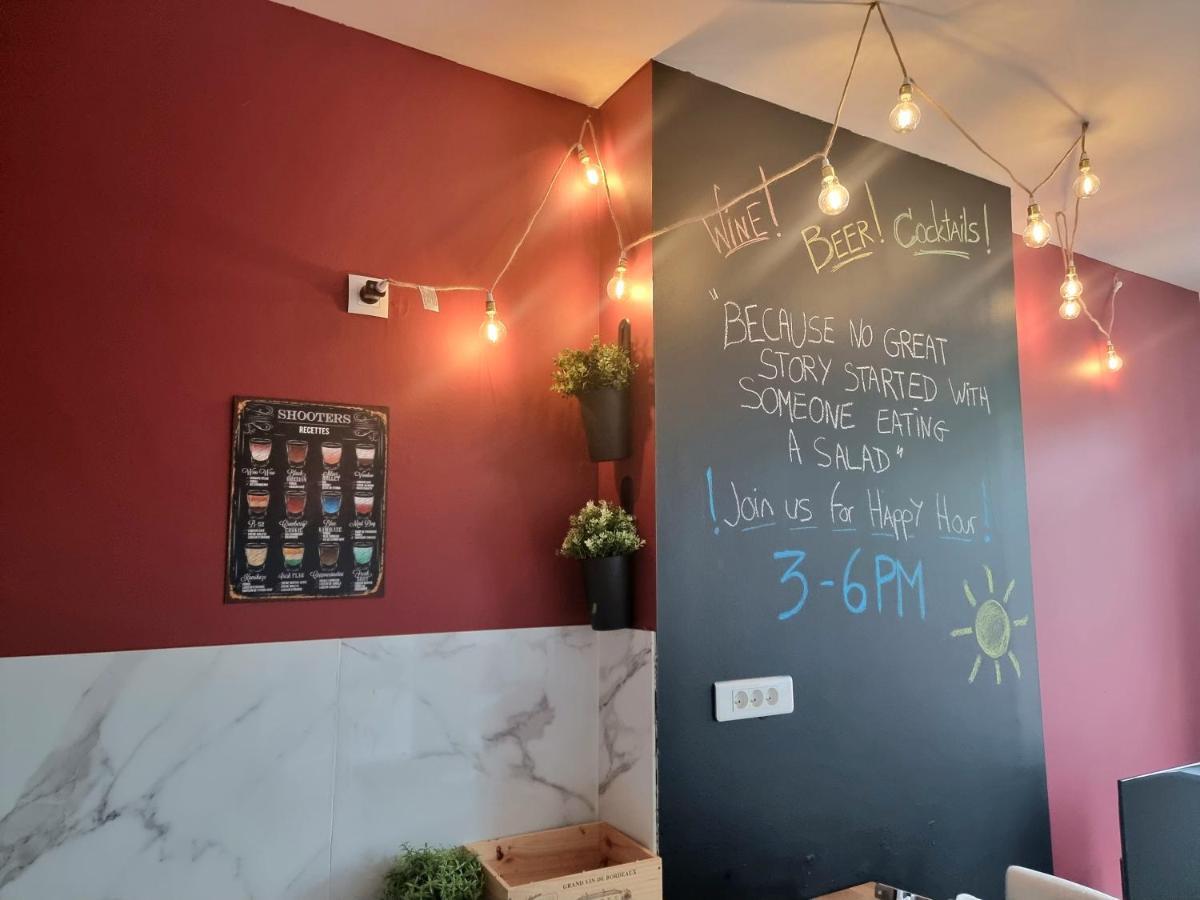 WINE! BEER! Cocktails!
"BECAUSE NO GREAT
STORY STARTED WITH
SOMEONE EATING
A SALAD"
! Join us for Happy Hour!
3-6PM
SHOOTERS
RECETTES
B-52
Kamikaze
GRAND VIN DE BORDEAUX